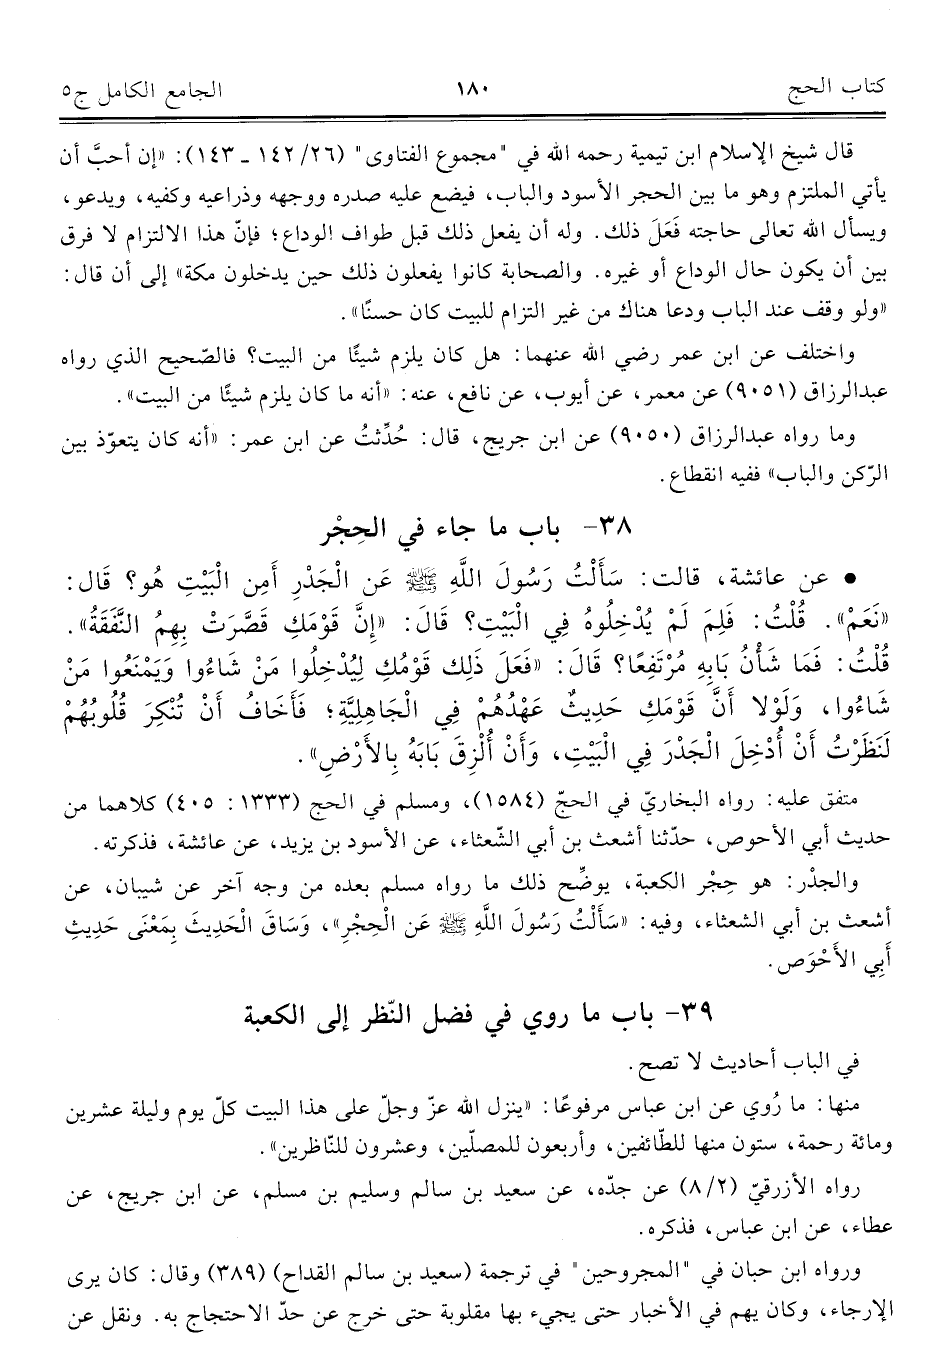 كتاب الحج ١٨٠ الجامع الكامل ج٥
قال شيخ الإسلام ابن تيمية رحمه الله في "مجموع الفتاوى" (٢٦/ ١٤٢ ـ ١٤٣): «إن أحبَّ أن
يأتي الملتزم وهو ما بين الحجر الأسود والباب، فيضع عليه صدره ووجهه وذراعيه وكفيه، ويدعو،
ويسأل الله تعالى حاجته فَعَلَ ذلك. وله أن يفعل ذلك قبل طواف الوداع؛ فإنّ هذا الالتزام لا فرق
بين أن يكون حال الوداع أو غيره. والصحابة كانوا يفعلون ذلك حين يدخلون مكة» إلى أن قال:
«ولو وقف عند الباب ودعا هناك من غير التزام للبيت كان حسنًا».
واختلف عن ابن عمر رضي الله عنهما: هل كان يلزم شيئًا من البيت؟ فالصّحيح الذي رواه
عبدالرزاق (٩٠٥١) عن معمر، عن أيوب، عن نافع، عنه: «أنه ما كان يلزم شيئًا من البيت».
وما رواه عبدالرزاق (٩٠٥٠) عن ابن جريج، قال: حُدِّثتُ عن ابن عمر: «أنه كان يتعوّذ بين
الرّكن والباب» ففيه انقطاع.
٣٨- باب ما جاء في الحِجْر
• عن عائشة، قالت: سَأَلْتُ رَسُولَ اللَّهِ ﷺ عَن الْجَدْرِ أَمِن الْبَيْتِ هُو؟ قَال:
«نَعَمْ». قُلْتُ: فَلِمَ لَمْ يُدْخِلُوهُ فِي الْبَيْتِ؟ قَالَ: «إِنَّ قَوْمَكِ قَصَّرَتْ بِهِمُ النَّفَقَةُ».
قُلْتُ: فَمَا شَأْنُ بَابِهِ مُرْتَفِعًا؟ قَالَ: «فَعَلَ ذَلِكِ قَوْمُكِ لِيُدْخِلُوا مَنْ شَاءُوا وَيَمْنَعُوا مَنْ
شَاءُوا، وَلَوْلا أَنَّ قَوْمَكِ حَدِيثٌ عَهْدُهُمْ فِي الْجَاهِلِيَّةِ؛ فَأَخَافُ أَنْ تُنْكِرَ قُلُوبُهُمْ
لَنَظَرْتُ أَنْ أُدْخِلَ الْجَدْرَ فِي الْبَيْتِ، وَأَنْ أُلْزِقَ بَابَهُ بِالأَرْضِ».
متفق عليه: رواه البخاريّ في الحجّ (١٥٨٤)، ومسلم في الحج (١٣٣٣: ٤٠٥) كلاهما من
حديث أبي الأحوص، حدّثنا أشعث بن أبي الشّعثاء، عن الأسود بن يزيد، عن عائشة، فذكرته.
والجدْر: هو حِجْر الكعبة، يوضِّح ذلك ما رواه مسلم بعده من وجه آخر عن شيبان، عن
أشعث بن أبي الشعثاء، وفيه: «سَأَلْتُ رَسُولَ اللَّهِ ﷺ عَن الْحِجْرِ»، وَسَاقَ الْحَدِيثَ بِمَعْنَى حَدِيثِ
أَبِي الأَحْوَص.
٣٩- باب ما روي في فضل النّظر إلى الكعبة
في الباب أحاديث لا تصح.
منها: ما رُوي عن ابن عباس مرفوعًا: «ينزل الله عزّ وجلّ على هذا البيت كلّ يوم وليلة عشرين
ومائة رحمة، ستون منها للطّائفين، وأربعون للمصلّين، وعشرون للنّاظرين».
رواه الأزرقيّ (٨/٢) عن جدّه، عن سعيد بن سالم وسليم بن مسلم، عن ابن جريج، عن
عطاء، عن ابن عباس، فذكره.
ورواه ابن حبان في "المجروحين" في ترجمة (سعيد بن سالم القداح) (٣٨٩) وقال: كان يرى
الإرجاء، وكان يهم في الأخبار حتى يجيء بها مقلوبة حتى خرج عن حدّ الاحتجاج به. ونقل عن